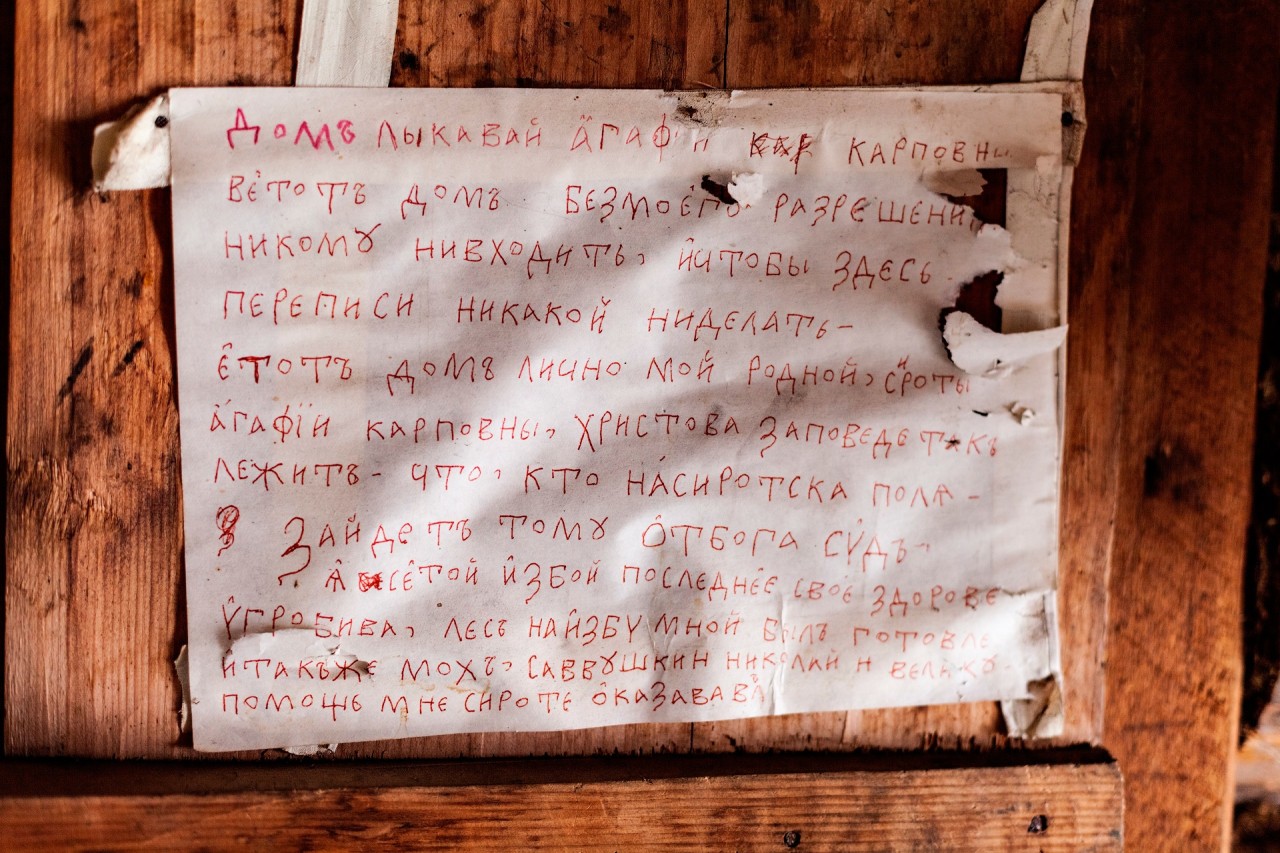 Домъ лыкавай а҆гафїи карповны
ве҆тотъ домъ безмоего разрешени
никомꙋ нивходить, и҆чтобы здесь
переписи никакой ниделать-
е҆тотъ домъ лично мой родной, си҆роты
а҆гафїи карповны, христова заповедетакъ
лежитъ - что, кто на́сиротска полѧ -
Зайдетъ томꙋ о҆тбога сꙋ҆дъ-
ѧ҆ се҆той и҆збой последнее свое здорове
ꙋ҆гробива, лесъ наи҆збꙋ мной былъ готовле
и҆такъже мохъ, саввꙋшкин николай н велѧкꙋ-
помощь мне сироте о҆казававъ